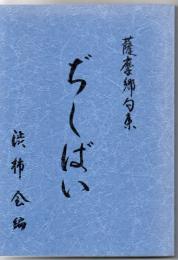 薩摩郷句集
ぢしばい
渋柿会編